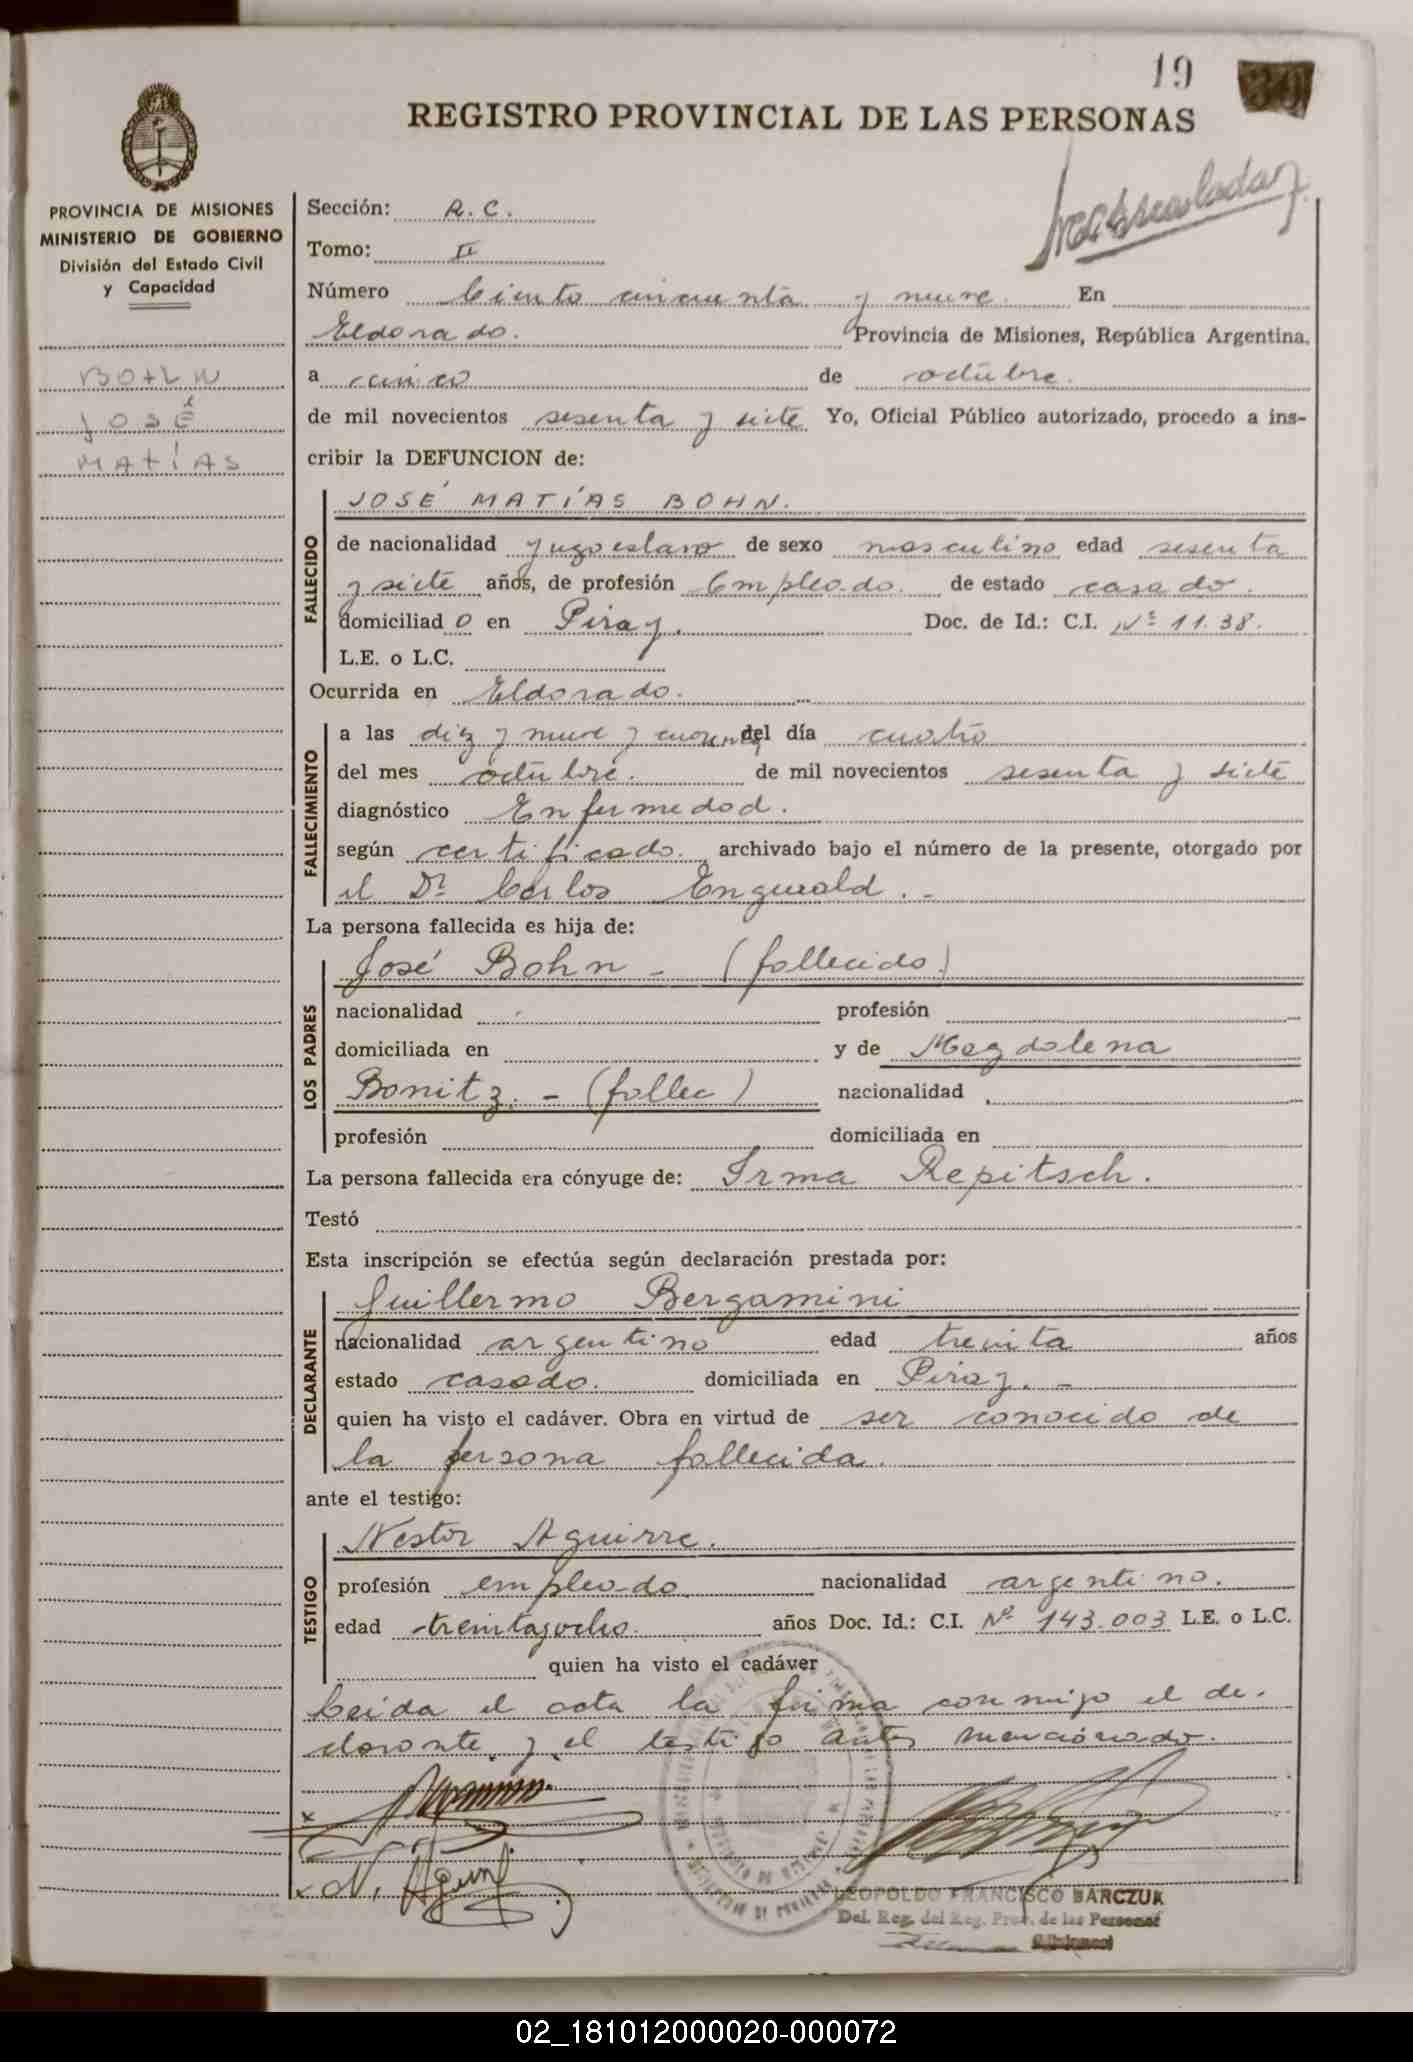 19
REGISTRO PROVINCIAL DE LAS PERSONAS
PROVINCIA DE MISIONES
MINISTERIO DE GOBIERNO
División del Estado Civil
y Capacidad
BOHN
JOSÉ
MATÍAS
Sección: R.C.
Tomo: II
Número Ciento cincuenta y nueve. En
Eldorado. Provincia de Misiones, República Argentina.
a cinco de octubre.
de mil novecientos sesenta y siete Yo, Oficial Público autorizado, procedo a ins-
cribir la DEFUNCION de:
FALLECIDO
JOSÉ MATÍAS BOHN.
de nacionalidad yugoeslavo de sexo masculino edad sesenta
y siete años, de profesión Empleado. de estado casado.
domiciliad o en Piray. Doc. de Id.: C.I. Nº 11.38.
L.E. o L.C.
Ocurrida en Eldorado.
FALLECIMIENTO
a las diez y nueve y cuarenta del día cuatro
del mes octubre. de mil novecientos sesenta y siete
diagnóstico Enfermedad.
según certificado. archivado bajo el número de la presente, otorgado por
el Dr. Carlos Enguald. -
La persona fallecida es hija de:
LOS PADRES
José Bohn - (fallecido)
nacionalidad profesión
domiciliada en y de Magdalena
Bonitz. - (fallec) nacionalidad
profesión domiciliada en
La persona fallecida era cónyuge de: Irma Repitsch.
Testó
Esta inscripción se efectúa según declaración prestada por:
DECLARANTE
Guillermo Bergamini
nacionalidad argentino edad treinta años
estado casado. domiciliada en Piray. -
quien ha visto el cadáver. Obra en virtud de ser conocido de
la persona fallecida.
ante el testigo:
TESTIGO
Nestor Aguirre.
profesión empleado nacionalidad argentino.
edad treintayocho. años Doc. Id.: C.I. Nº 143.003 L.E. o L.C.
quien ha visto el cadáver
Leida el acta la firma conmigo el de-
clarante y el testigo antes mencionado.
N. Aguirre
LEOPOLDO FRANCISCO BARCZUK
Del. Reg. del Reg. Prov. de las Personas
Misiones
02_181012000020-000072